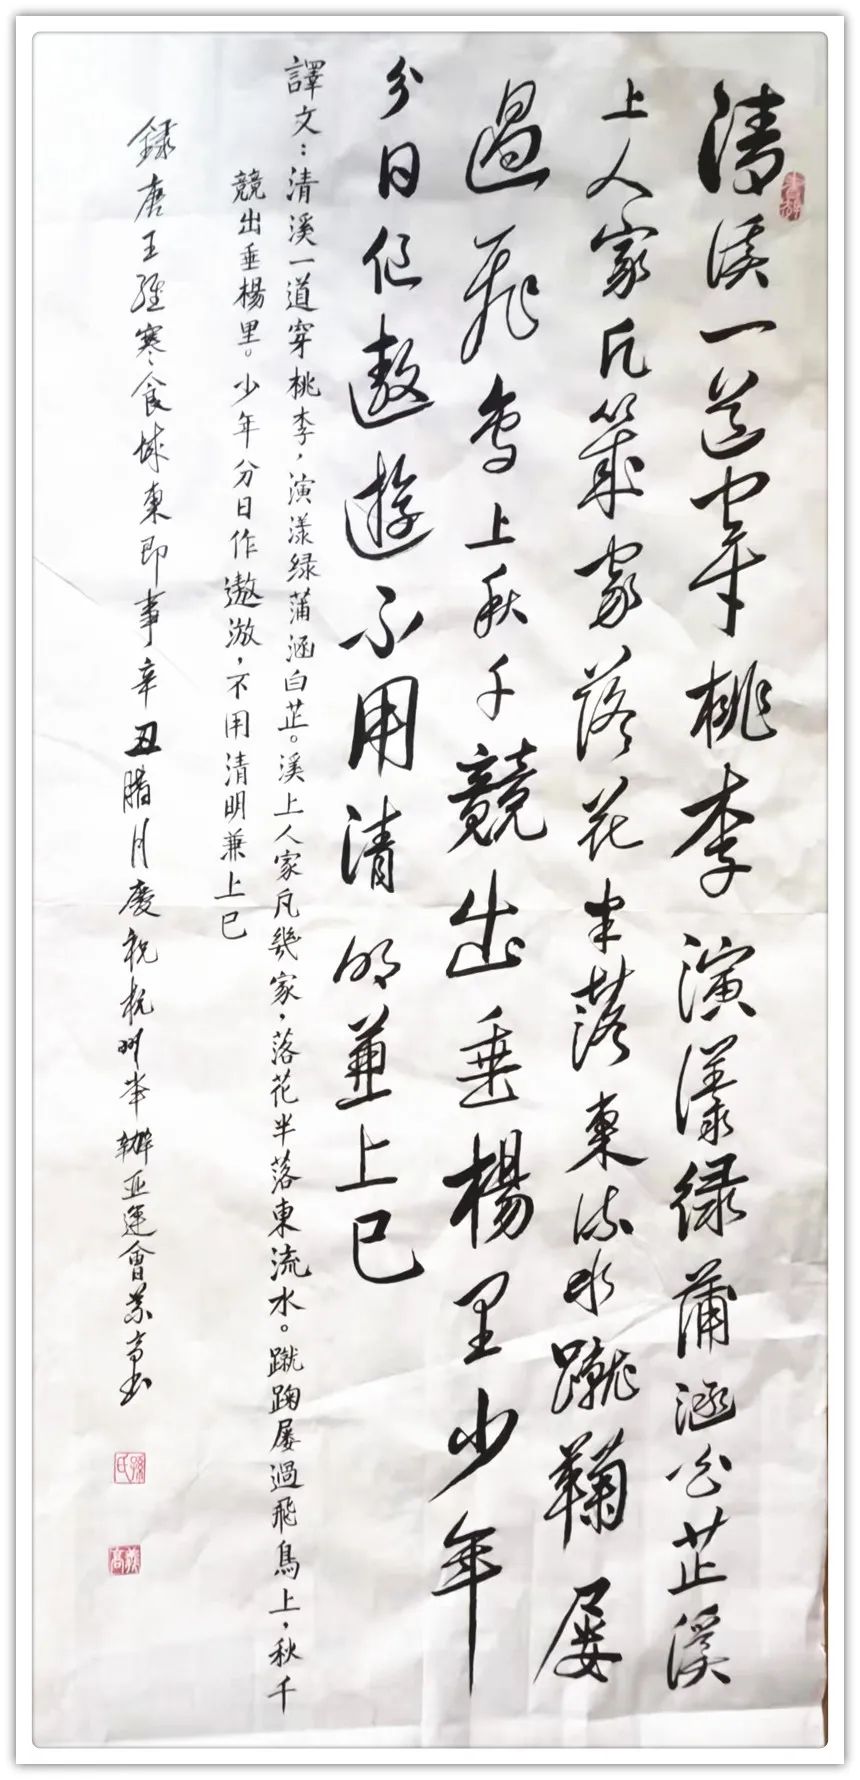 清溪一道穿桃李演漾绿蒲涵白芷溪
上人家凡幾家落花半落東流水蹴鞠屢
過飛鳥上秋千競出垂楊里少年
分日作遨遊不用清明兼上巳
譯文：清溪一道穿桃李，演漾绿蒲涵白芷。溪上人家凡幾家，落花半落東流水。蹴踘屢過飛鳥上，秋千
競出垂楊里。少年分日作遨游，不用清明兼上巳
録唐王維寒食城東即事辛丑腊月慶祝杭州举辦亚運會義高书